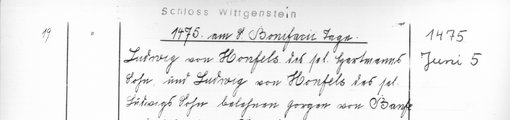 Schloss Wittgenstein
19 " 1475. am S. Bonifacii Tage. 1475
Ludwig von Honfels des sel. Hertmanns Juni 5
Sohn und Ludwig von Honfels des sel.
Ludwigs Sohn belehnen gorgen von Banfe